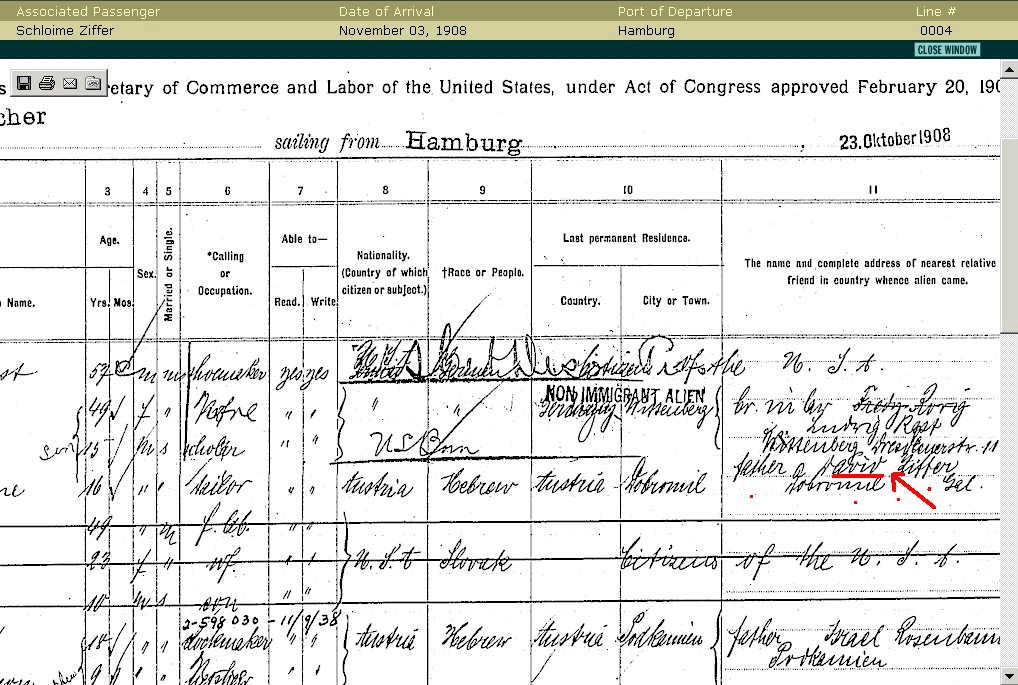 Associated Passenger Date of Arrival Port of Departure Line #
Schloime Ziffer November 03, 1908 Hamburg 0004
CLOSE WINDOW
retary of Commerce and Labor of the United States, under Act of Congress approved February 20, 190
cher
sailing from Hamburg , 23.Oktober1908
3 4 5 6 7 8 9 10 11
Age. Sex. Married or Single. *Calling or Occupation. Able to— Nationality. (Country of which citizen or subject.) †Race or People. Last permanent Residence. The name and complete address of nearest relative or friend in country whence alien came.
Name. Yrs. Mos. Read. Write. Country. City or Town.
52 m m shoemaker yes yes Citizens of the U. S. A.
NON IMMIGRANT ALIEN
49 f " " " " "
Ludwig Rost
son 15 m s scholar " " US Born
Wittenberg
father David Ziffer
16 " " tailor " " Austria Hebrew Austria Dobromil Dobromil Gal.
49 " m f. lab. " "
23 f " wf. " " U. S. A. Slovak Citizens of the U. S. A.
10 m s son " "
2-598 030 - 11/9/38
18 " " bookmaker " " Austria Hebrew Austria Podkamien father Israel Rosenbaum
Podkamien
9 " "